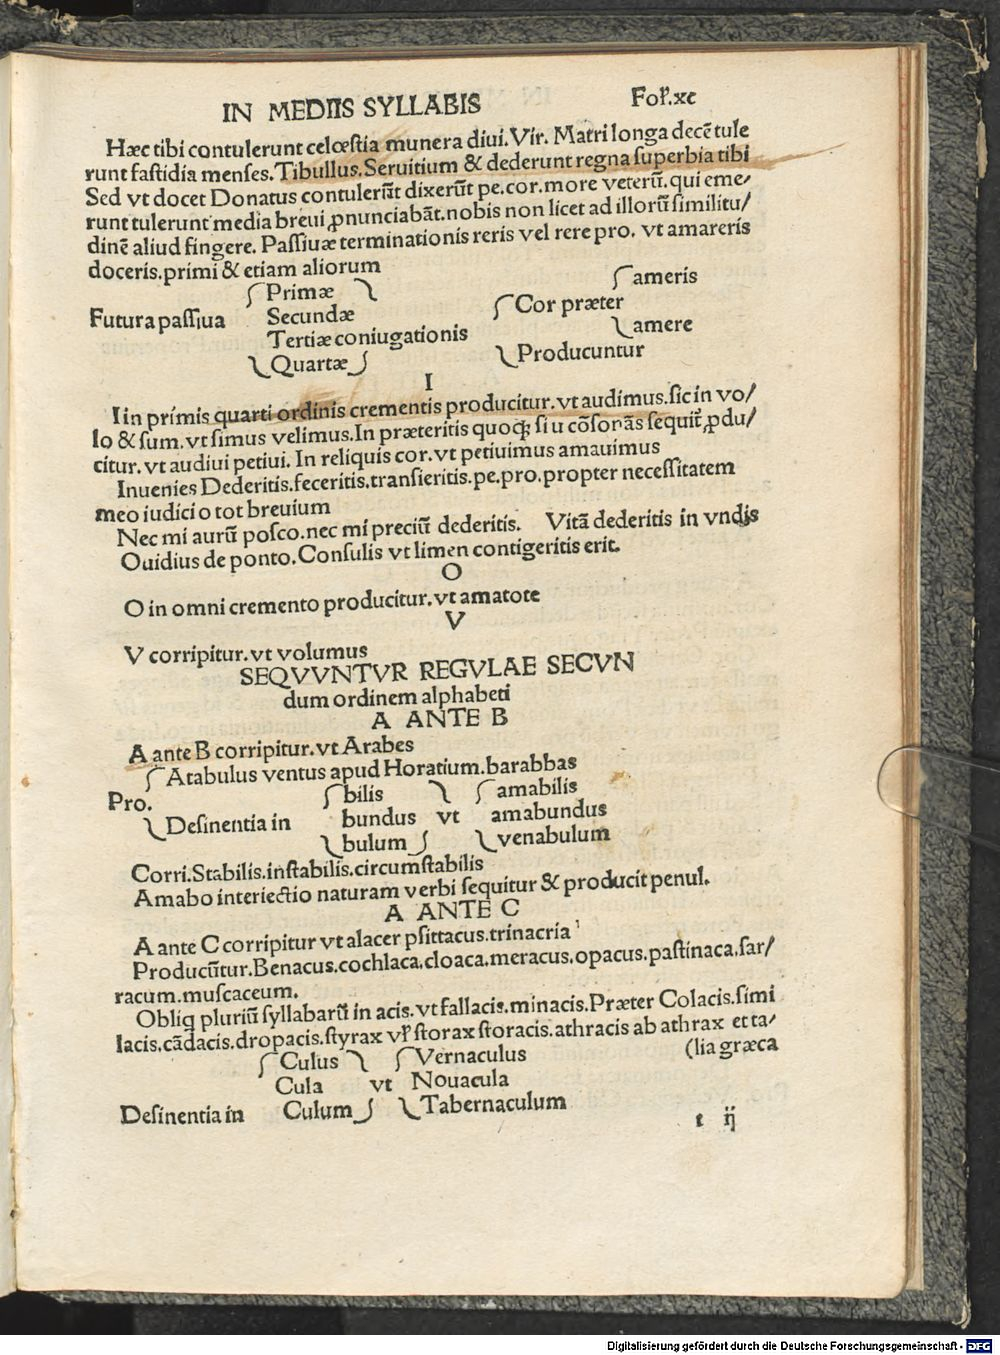 IN MEDIIS SYLLABIS Foł.xc
Hæc tibi contulerunt celœstia munera diui. Vir. Matri longa decē tule
runt fastidia menses. Tibullus. Seruitium & dederunt regna superbia tibi
Sed vt docet Donatus contulerūt dixerūt pe. cor. more veterū. qui eme/
runt tulerunt media breui ꝓnunciabāt. nobis non licet ad illorū similitu/
dinē aliud fingere. Passiuæ terminationis reris vel rere pro. vt amareris
doceris. primi & etiam aliorum
Primæ ameris
Futura passiua Secundæ Cor præter
Tertiæ coniugationis amere
Quartæ Producuntur
I
I in primis quarti ordinis crementis producitur. vt audimus. sic in vo/
lo & sum. vt simus velimus. In præteritis quoqꝫ si u cōsonās sequit̄ ꝓdu/
citur. vt audiui petiui. In reliquis cor. vt petiuimus amauimus
Inuenies Dederitis. feceritis. transieritis. pe. pro. propter necessitatem
meo iudicio tot breuium
Nec mi aurū posco. nec mi preciū dederitis. Vitā dederitis in vndis
Ouidius de ponto. Consulis vt limen contigeritis erit.
O
O in omni cremento producitur. vt amatote
V
V corripitur. vt volumus
SEQVVNTVR REGVLAE SECVN
dum ordinem alphabeti
A ANTE B
A ante B corripitur. vt Arabes
Atabulus ventus apud Horatium. barabbas
Pro. bilis amabilis
Desinentia in bundus vt amabundus
bulum venabulum
Corri. Stabilis. instabilis. circumstabilis
Amabo interiectio naturam verbi sequitur & producit penul.
A ANTE C
A ante C corripitur vt alacer psittacus. trinacria
Producūtur. Benacus. cochlaca. cloaca. meracus. opacus. pastinaca. sar/
racum. muscaceum.
Obliq pluriū syllabarū in acis. vt fallacis. minacis. Præter Colacis. simi
lacis. cādacis. dropacis. styrax vł storax storacis. athracis ab athrax et ta/
(lia græca
Culus Vernaculus
Cula vt Nouacula
Desinentia in Culum Tabernaculum
t ij
Digitalisierung gefördert durch die Deutsche Forschungsgemeinschaft - DFG